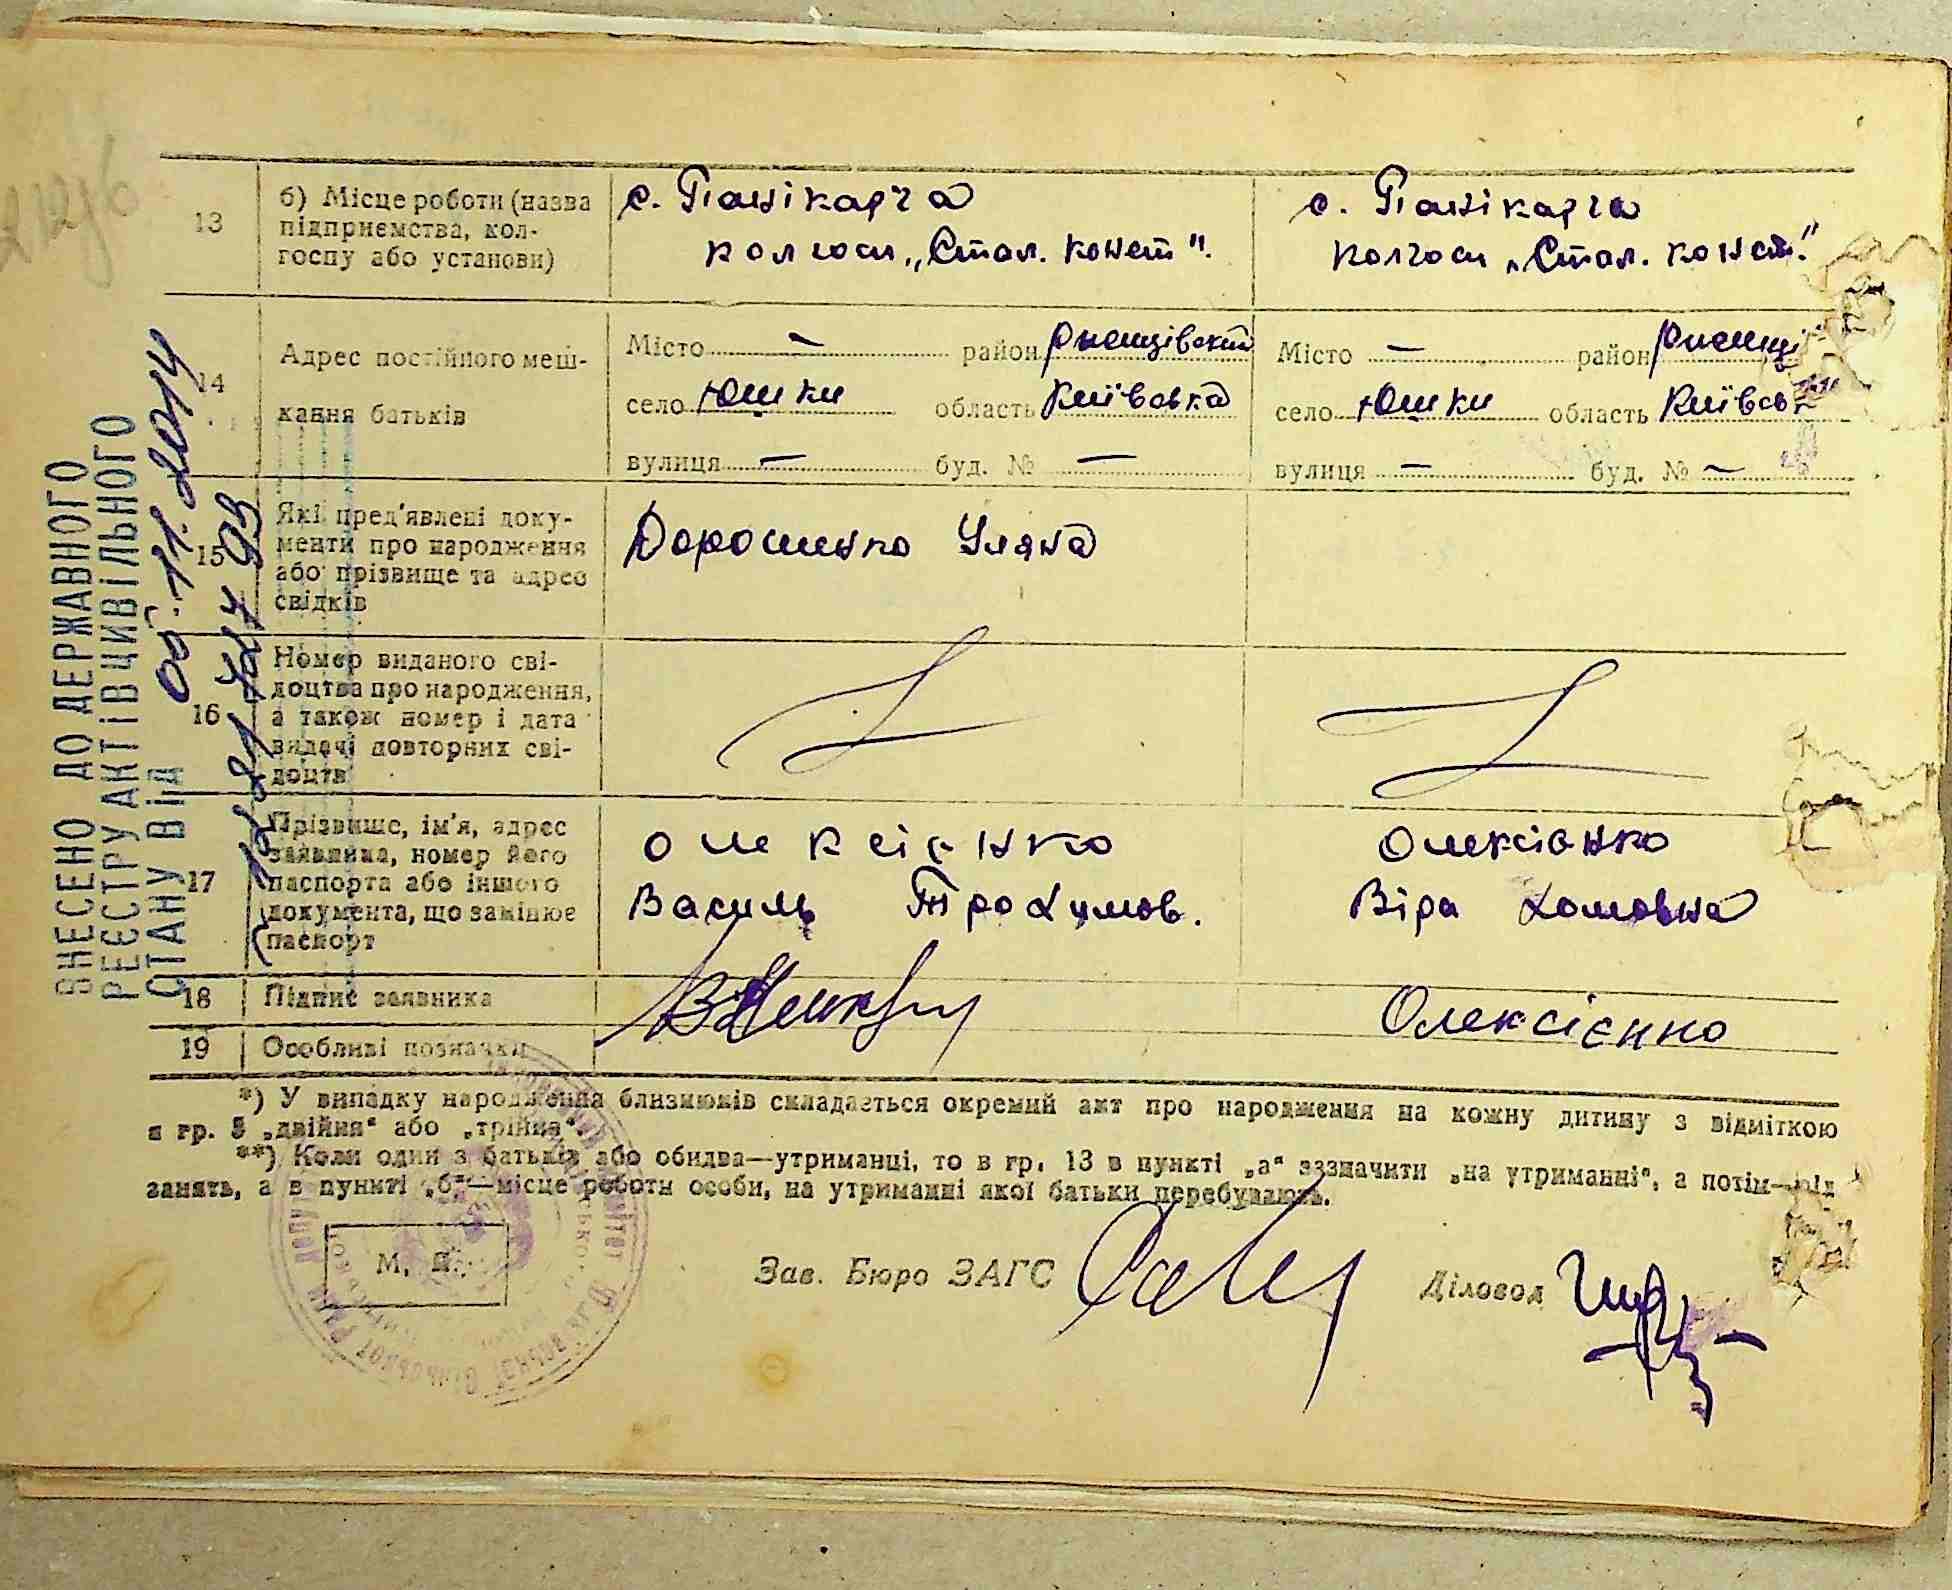 13
б) Місце роботи (назва
підприємства, кол-
госпу або установи)
с. Панікарча
колгосп „Стал. конст".
с. Панікарча
колгосп „Стал. конст."
14
Адрес постійного меш-
кання батьків
Місто — район Ржищівский
село Юшки область Київська
вулиця — буд. № —
Місто — район Ржищі
село Юшки область Київськ
вулиця — буд. № —
15
Які пред'явлені доку-
менти про народження
або прізвище та адрес
свідків
Дорошенко Уляна
16
Номер виданого сві-
доцтва про народження,
а також номер і дата
видачі повторних сві-
доцтв
17
Прізвище, ім'я, адрес
заявника, номер його
паспорта або іншого
документа, що замінює
паспорт
Олексієнко
Василь Трохимов.
Олексієнко
Віра Хомовна
18
Підпис заявника
Олексієнко
19
Особливі позначки
*) У випадку народження близнюків складається окремий акт про народження на кожну дитину з відміткою
в гр. 5 „двійня" або „трійня".
**) Коли один з батьків або обидва—утриманці, то в гр. 13 в пункті „а" зазначити „на утриманні", а потім—рід
занять, а в пункті „б"—місце роботи особи, на утриманні якої батьки перебувають.
М. П.
Зав. Бюро ЗАГС
Діловод
ВНЕСЕНО ДО ДЕРЖАВНОГО
РЕЄСТРУ АКТІВ ЦИВІЛЬНОГО
СТАНУ ВІД 05.11.2014